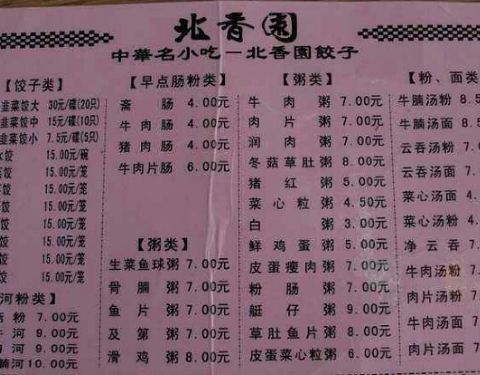 北香園
中華名小吃－北香園餃子
【饺子类】
韭菜饺大 30元/碟(20只)
韭菜饺中 15元/碟(10只)
韭菜饺小 7.5元/碟(5只)
饺 15.00元/碗
饺 15.00元/笼
饺 15.00元/笼
饺 15.00元/笼
饺 15.00元/笼
饺 15.00元/笼
饺 15.00元/笼
河粉类】
粉 7.00元
河 9.00元
河 9.00元
腩河 10.00元
【早点肠粉类】
斋肠 4.00元
牛肉肠 4.00元
猪肉肠 4.00元
牛肉片肠 6.00元
【粥类】
生菜鱼球粥 7.00元
骨腩粥 7.00元
鱼片粥 7.00元
及第粥 7.00元
滑鸡粥 8.00元
【粥类】
牛肉粥 7.00元
肉片粥 7.00元
润肉粥 7.00元
冬菇草肚粥 8.00元
猪红粥 5.00元
菜心粒粥 4.50元
白粥 3.00元
鲜鸡蛋粥 5.00元
皮蛋瘦肉粥 7.00元
粉肠粥 7.00元
艇仔粥 9.00元
草肚鱼片粥 8.00元
皮蛋菜心粒粥 6.00元
【粉、面类】
牛腩汤粉 8.5
牛腩汤面 8.5
云吞汤粉 7.5
云吞汤面 7.5
菜心汤粉 4.
菜心汤面 4.
净云吞 7.
牛肉汤粉 7.
肉片汤粉 7.
牛肉汤面 7.
肉片汤面 7.